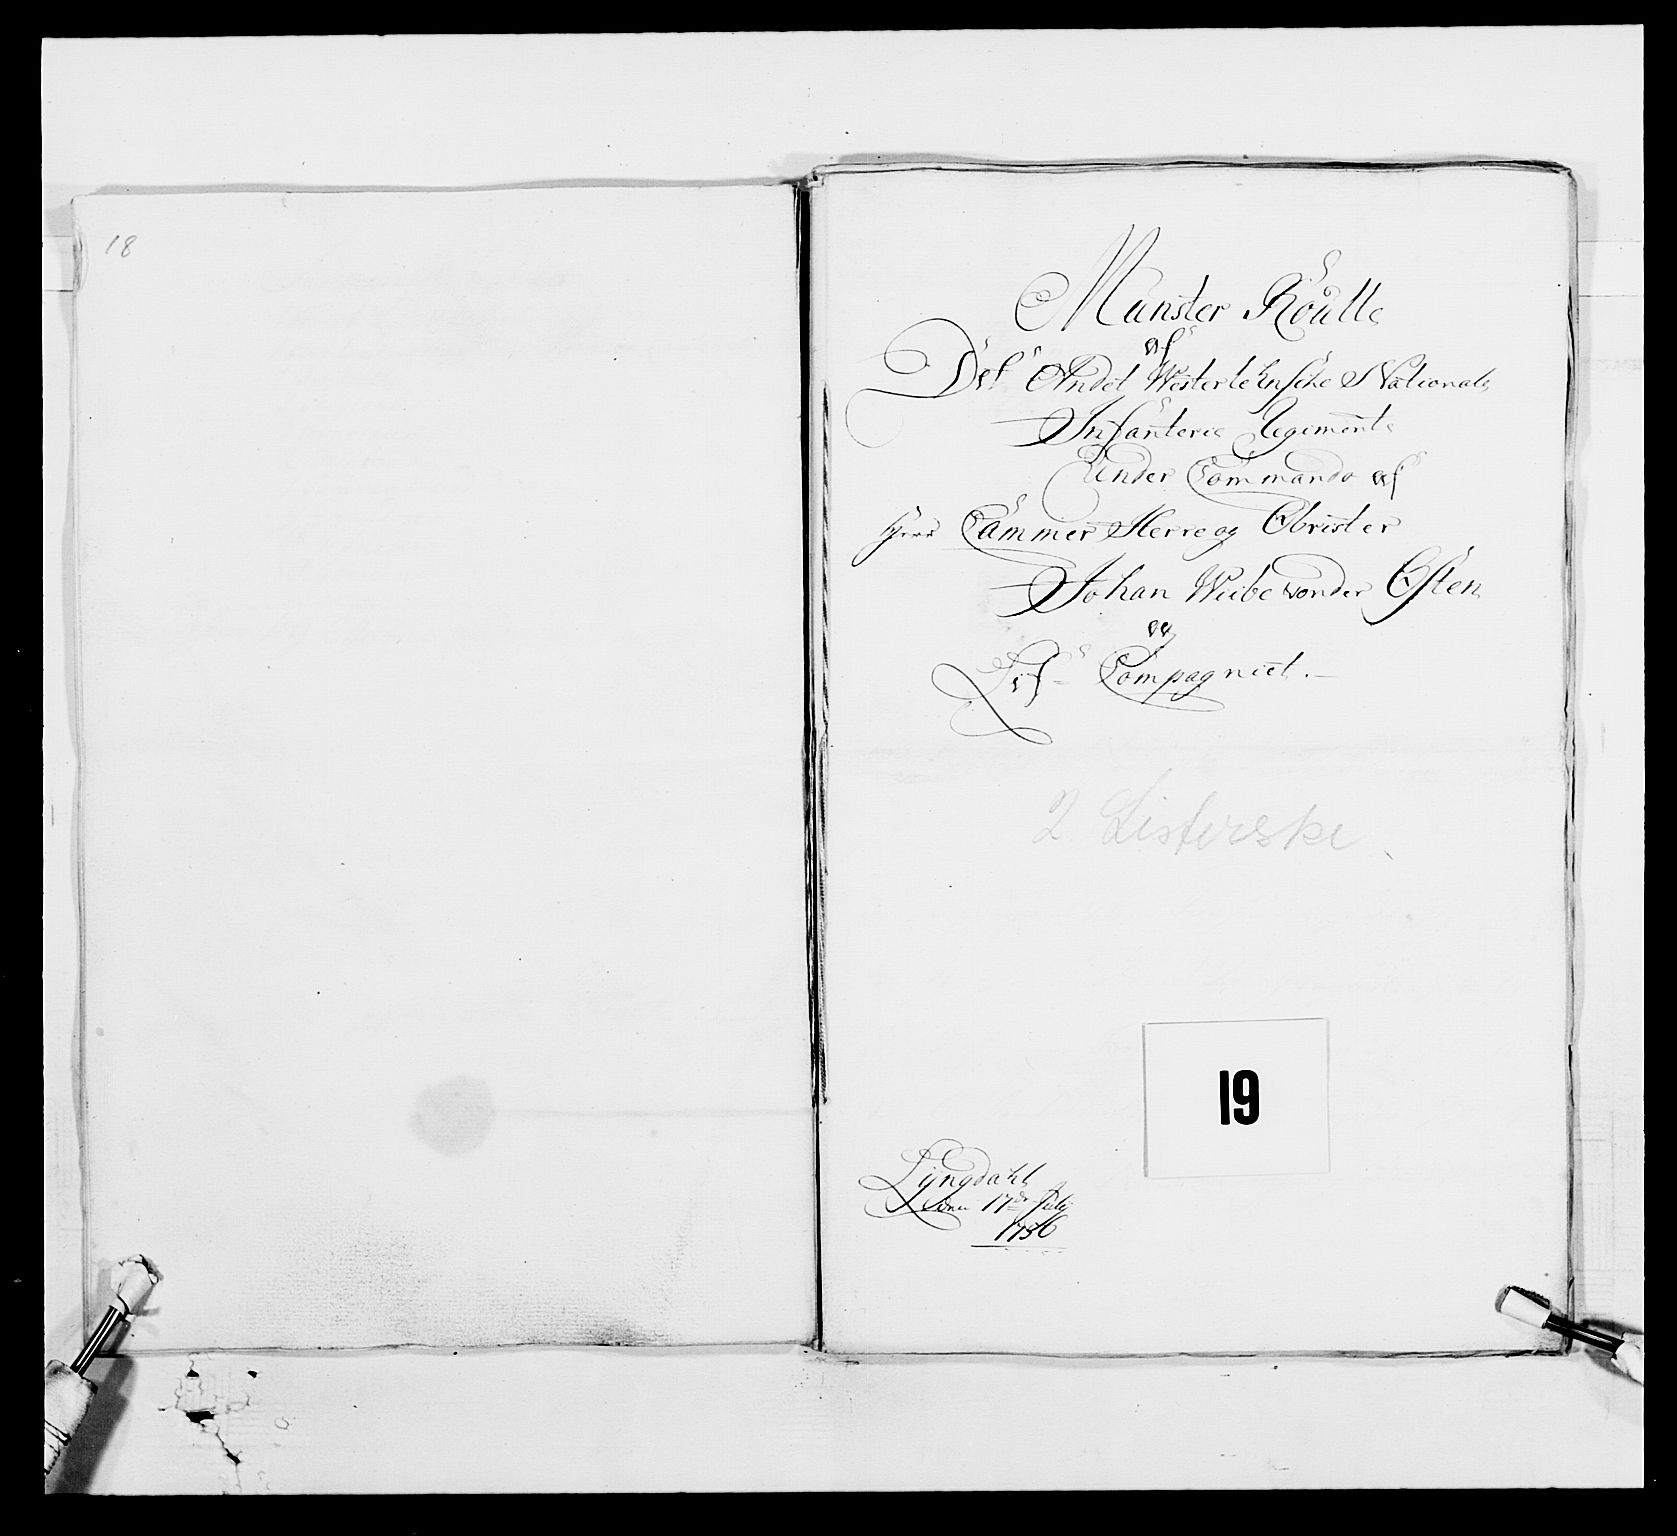 18
Munster Roulle
af
Det Andet Westerlehnske National
Infanterie Regiment
Under Commando af
Herr Cammer Herre og Obrister
Johan Wibe vonder Osten
og
Lif Compagniet.
2 Listerske
19
Lyngdahl
den 17de July
1756